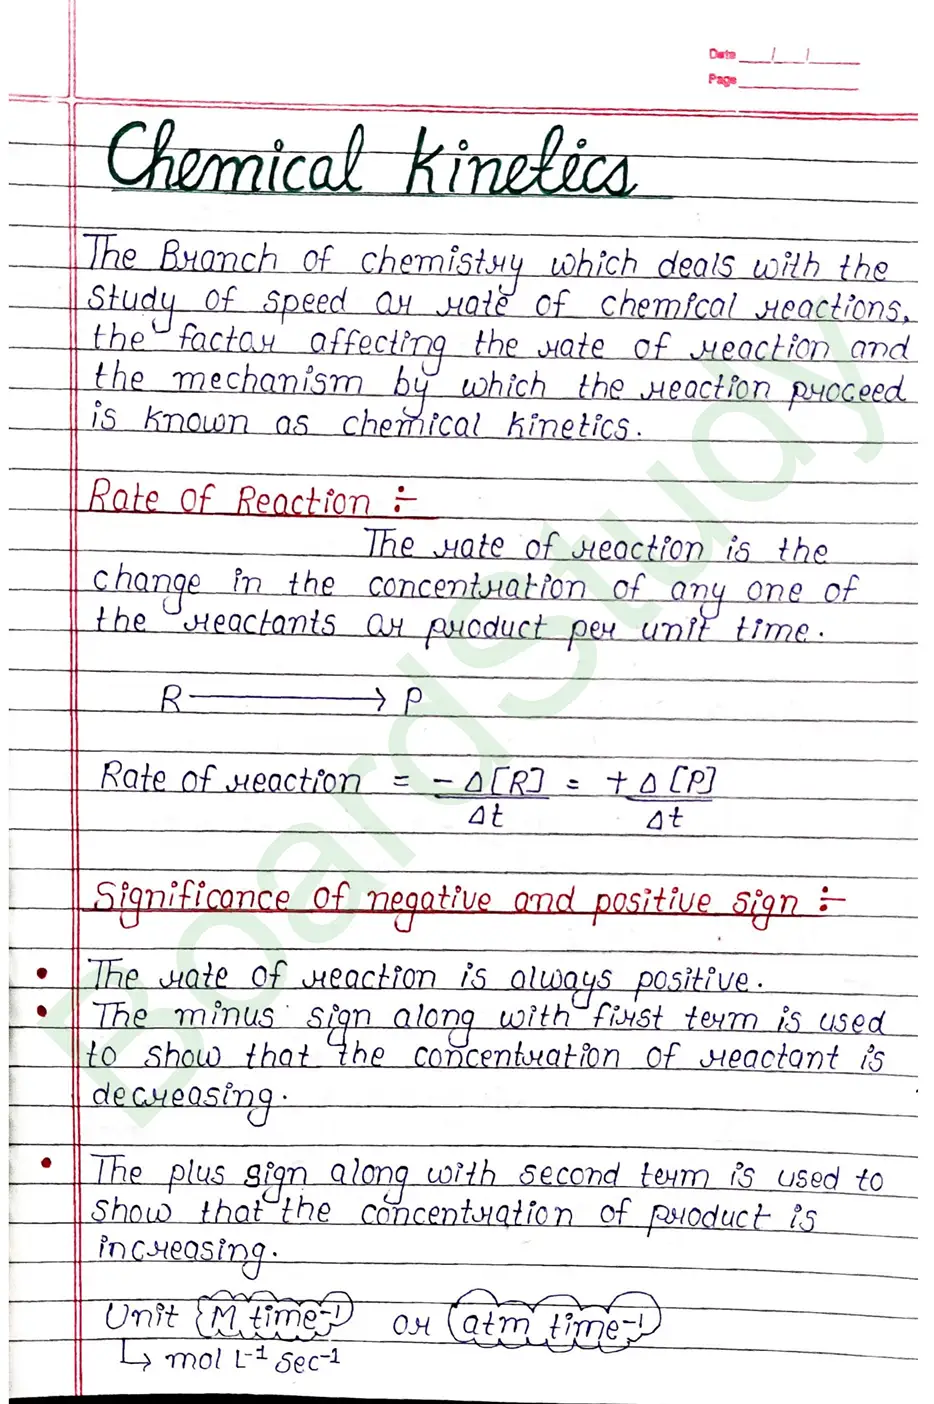 Date / /
Page
Chemical Kinetics
The Branch of chemistry which deals with the
study of speed or rate of chemical reactions,
the factor affecting the rate of reaction and
the mechanism by which the reaction proceed
is known as chemical kinetics.
Rate of Reaction :-
The rate of reaction is the
change in the concentration of any one of
the reactants or product per unit time.
R ⟶ P
Rate of reaction = -Δ[R]/Δt = +Δ[P]/Δt
Significance of negative and positive sign :-
• The rate of reaction is always positive.
• The minus sign along with first term is used
to show that the concentration of reactant is
decreasing.
• The plus sign along with second term is used to
show that the concentration of product is
increasing.
Unit M time⁻¹ or atm time⁻¹
↳ mol L⁻¹ sec⁻¹
BoardStudy